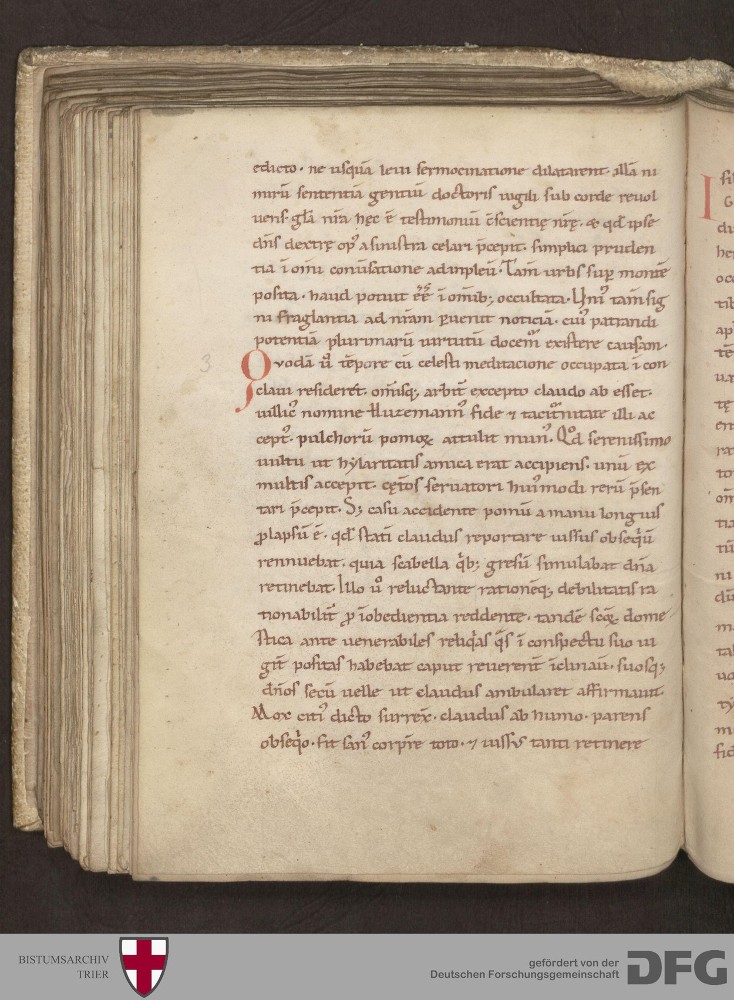 edicto · ne usquā leui sermocinatione dilatarent · illā ni
mirū sententiā gentiū doctoris uigili sub corde reuol
uens · gl̄a nr̄a hęc ē testimoniū c̄scientię nr̄ę · & qd̄ ipse
dn̄s dextrę op' a sinistra celari p̄cepit · simplici pruden
tia ī om̄i conuersatione adinpleu͛ · Tam̄ urbs sup̱ montē
posita · haud potuit ēē ī om̄ib; occultata · Un' tam̄ sig
ni fraglantia ad nr̄am ꝑuenit noticiā · cui' patrandi
potentiā plurimarū uirtutū docem̄' existere causam ·
3
Quodā u͛o tēpore cū celesti meditacione occupata ī con
claui resideret · om̄isq; arbit͛ excepto claudo ab esset ·
uillic' nomine Huzemann' fide & tacit͛nitate illi ac
cept' · pulchorū pomoꝝ attulit mun' · Qod serenissimo
uultu ut hẏlaritatis amica erat accipiens · unū ex
multis accepit · cęt͛os seruatori hui'modi rerū p̄sen
tari p̄cepit · S; casu accidente pomū a manu longius
ꝓlapsū ē · qd̄ statī claudus reportare iussus obseq̄ū
rennuebat · quia scabella q̇b; gresū simulabat dn̄a
retinebat · Illo u͛o reluctante rationēq; debilitatis ra
tionabilit͛ ꝓ īobedientia reddente · tandē scōꝝ dome
stica ante uenerabiles reliq̇as q̄s ī conspectu suo iu
git͛ positas habebat caput reuerent͛ īclinauit · suosq;
dn̄os secū uelle ut claudus ambularet affirmauit
Mox citi' dicto surrex̄ · claudus ab humo · parens
obseq̇o · fit san' corpr̄e toto · & iussus tanti retinere
I
BISTUMSARCHIV
TRIER
gefördert von der
Deutschen Forschungsgemeinschaft
DFG